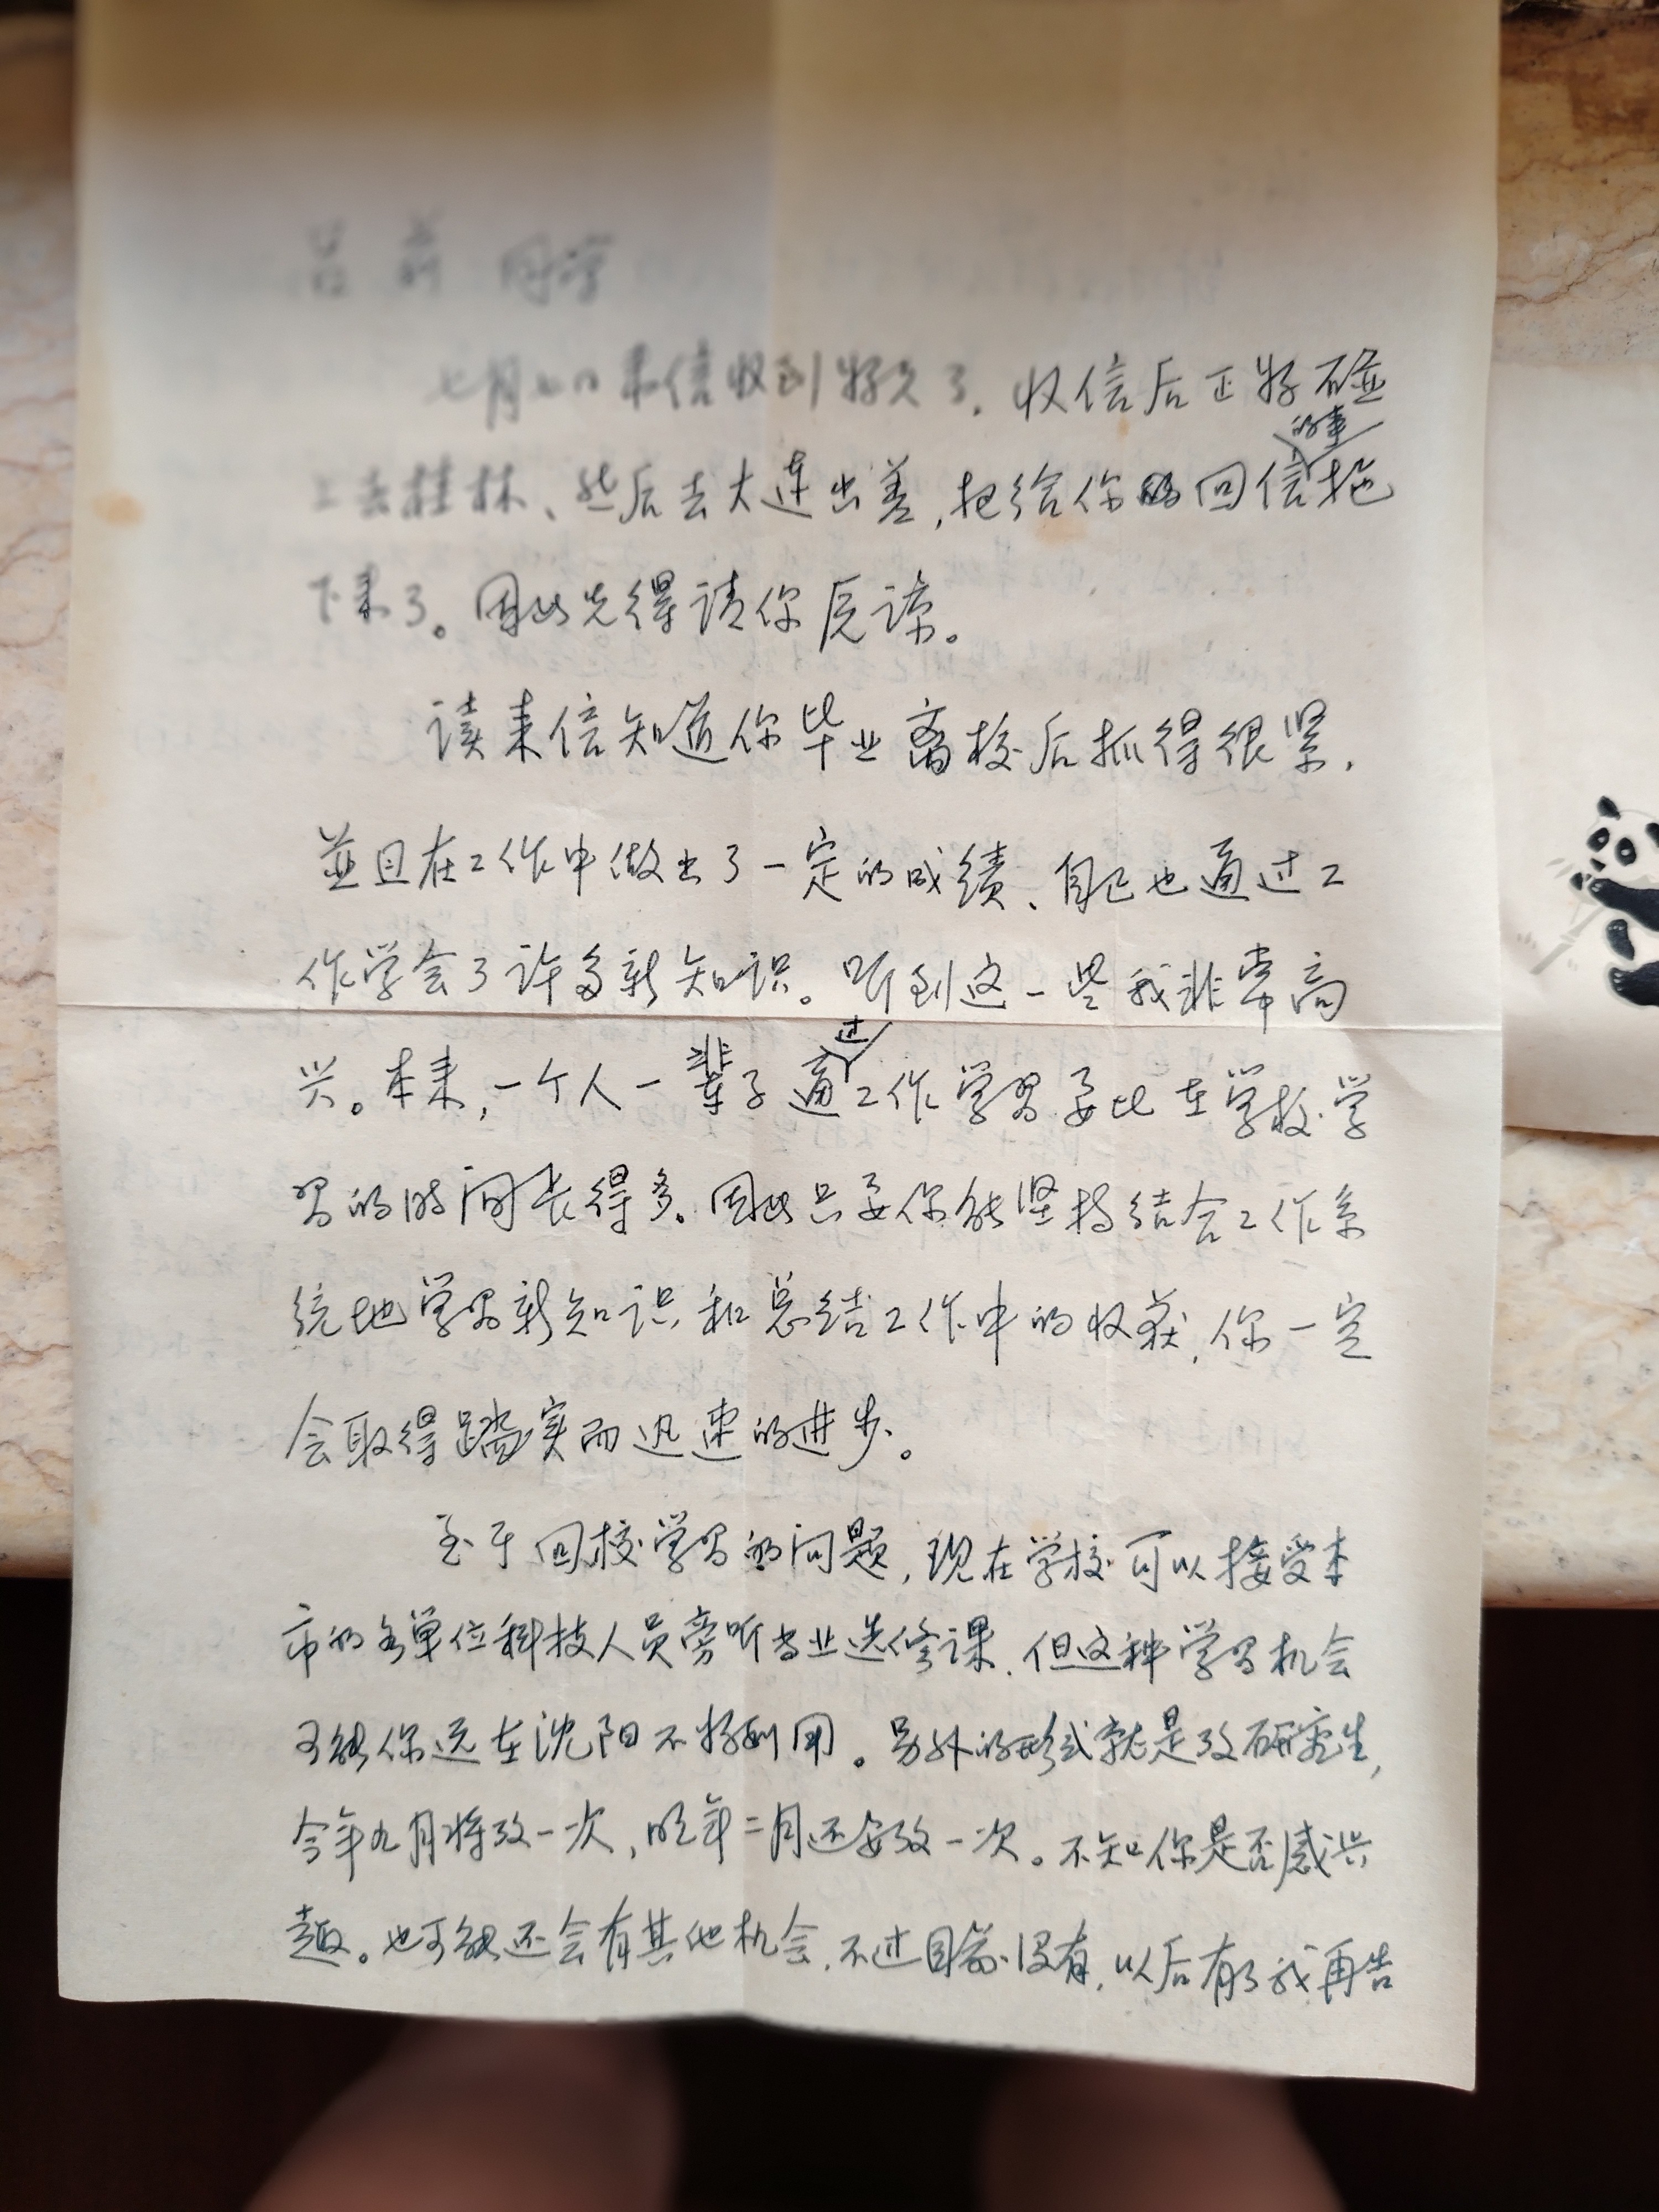 吕 前 同学
七月七日来信收到好久了，收信后正好碰
上去桂林、然后去大连出差，把给你的回信的事拖
下来了。因此先得请你原谅。
读来信知道你毕业离校后抓得很紧，
並且在工作中做出了一定的成绩、自己也通过工
作学会了许多新知识。听到这一些我非常高
兴。本来，一个人一辈子通过工作学习要比在学校学
习的时间长得多。因此只要你能坚持结合工作系
统地学习新知识和总结工作中的收获，你一定
会取得踏实而迅速的进步。
至于回校学习的问题，现在学校可以接受本
市的各单位科技人员旁听专业选修课，但这种学习机会
可能你远在沈阳不好利用。另外的形式就是攷研究生，
今年九月将攷一次，明年二月还要攷一次。不知你是否感兴
趣。也可能还会有其他机会，不过目前没有，以后有了我再告